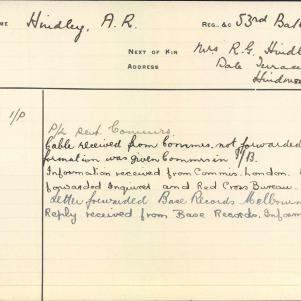 ME Hindley, A. R. REG. &C 53rd Bat
NEXT OF KIN Mrs R. G. Hindl
ADDRESS Dale Terrace
Hindm
1/P
P/c sent Commrs.
Cable received from Commrs. not forwarded
formation was given Commrs in
Information received from Commrs. London.
forwarded Inquirer and Red Cross Bureau.
Letter forwarded Base Records Melbourn
Reply received from Base Records. Inform